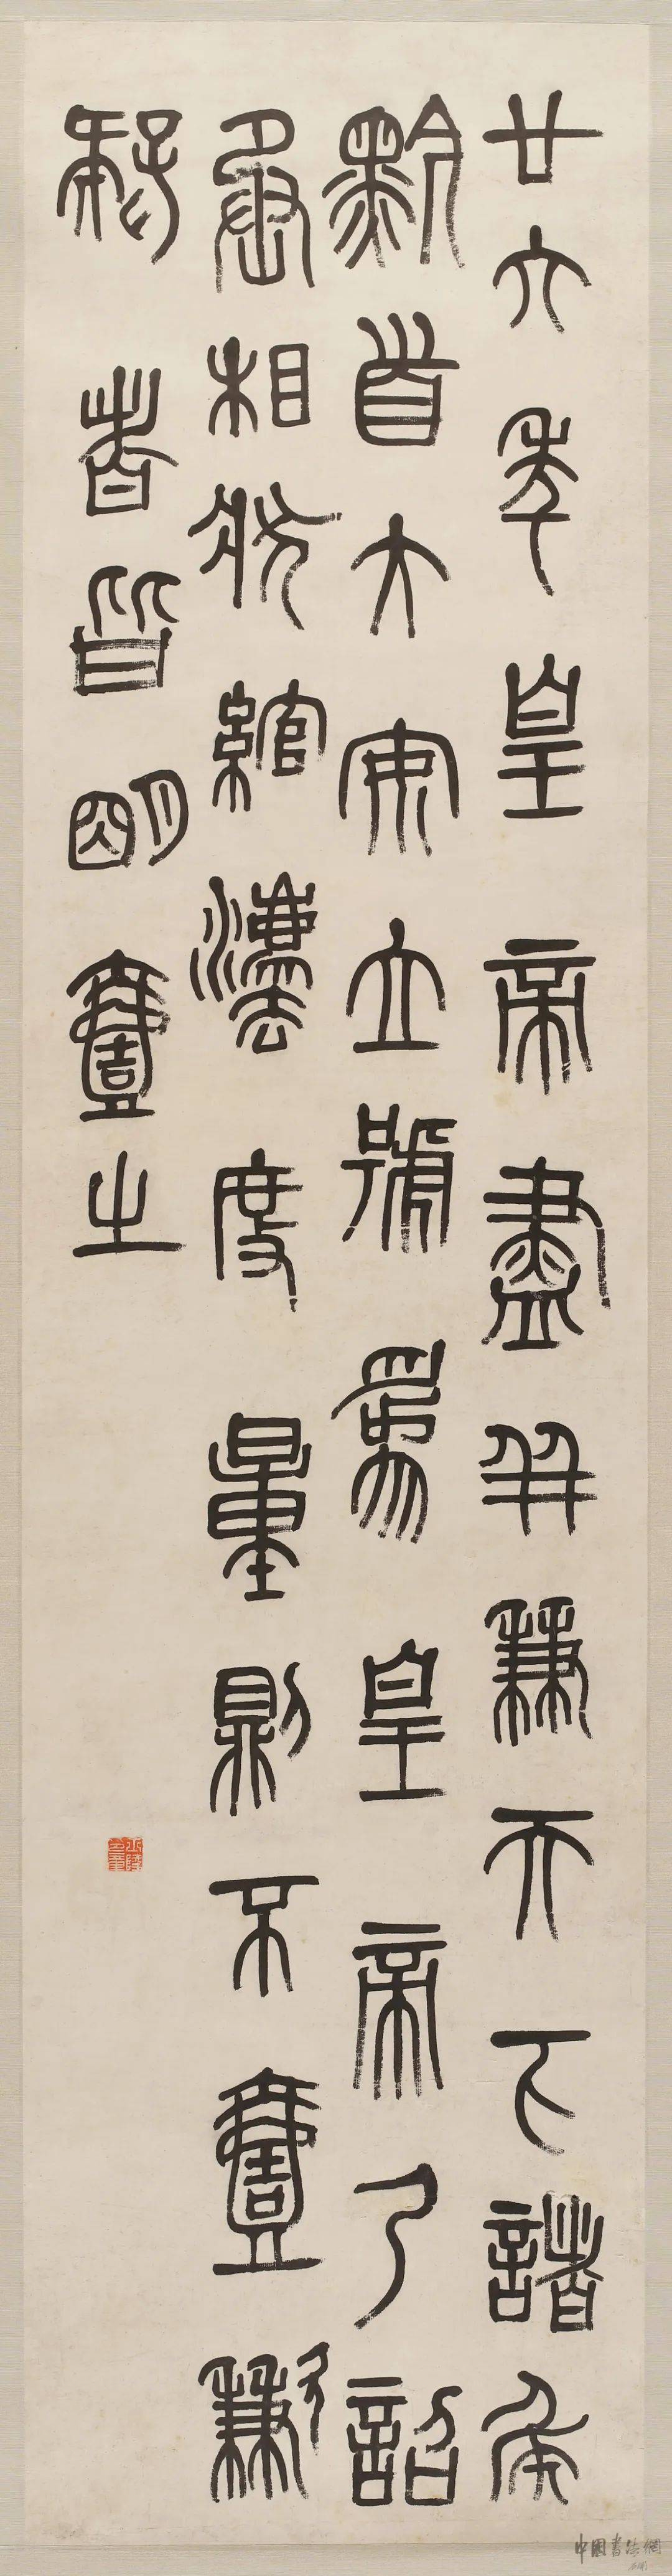 廿六年皇帝盡并兼天下諸侯
黔首大安立號為皇帝乃詔
丞相狀綰灋度量則不壹歉
疑者皆明壹之
中國書法網